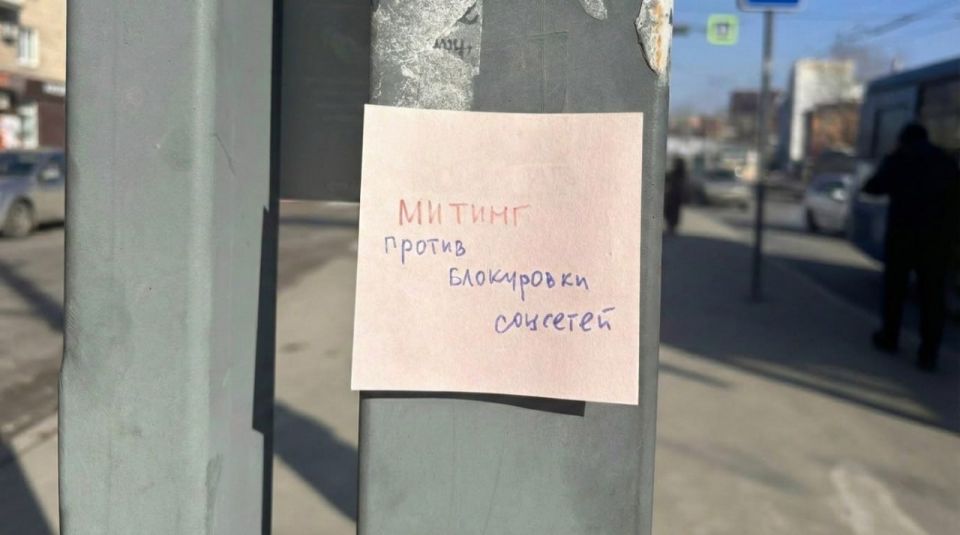 МИТИНГ
против
блокировки
соцсетей